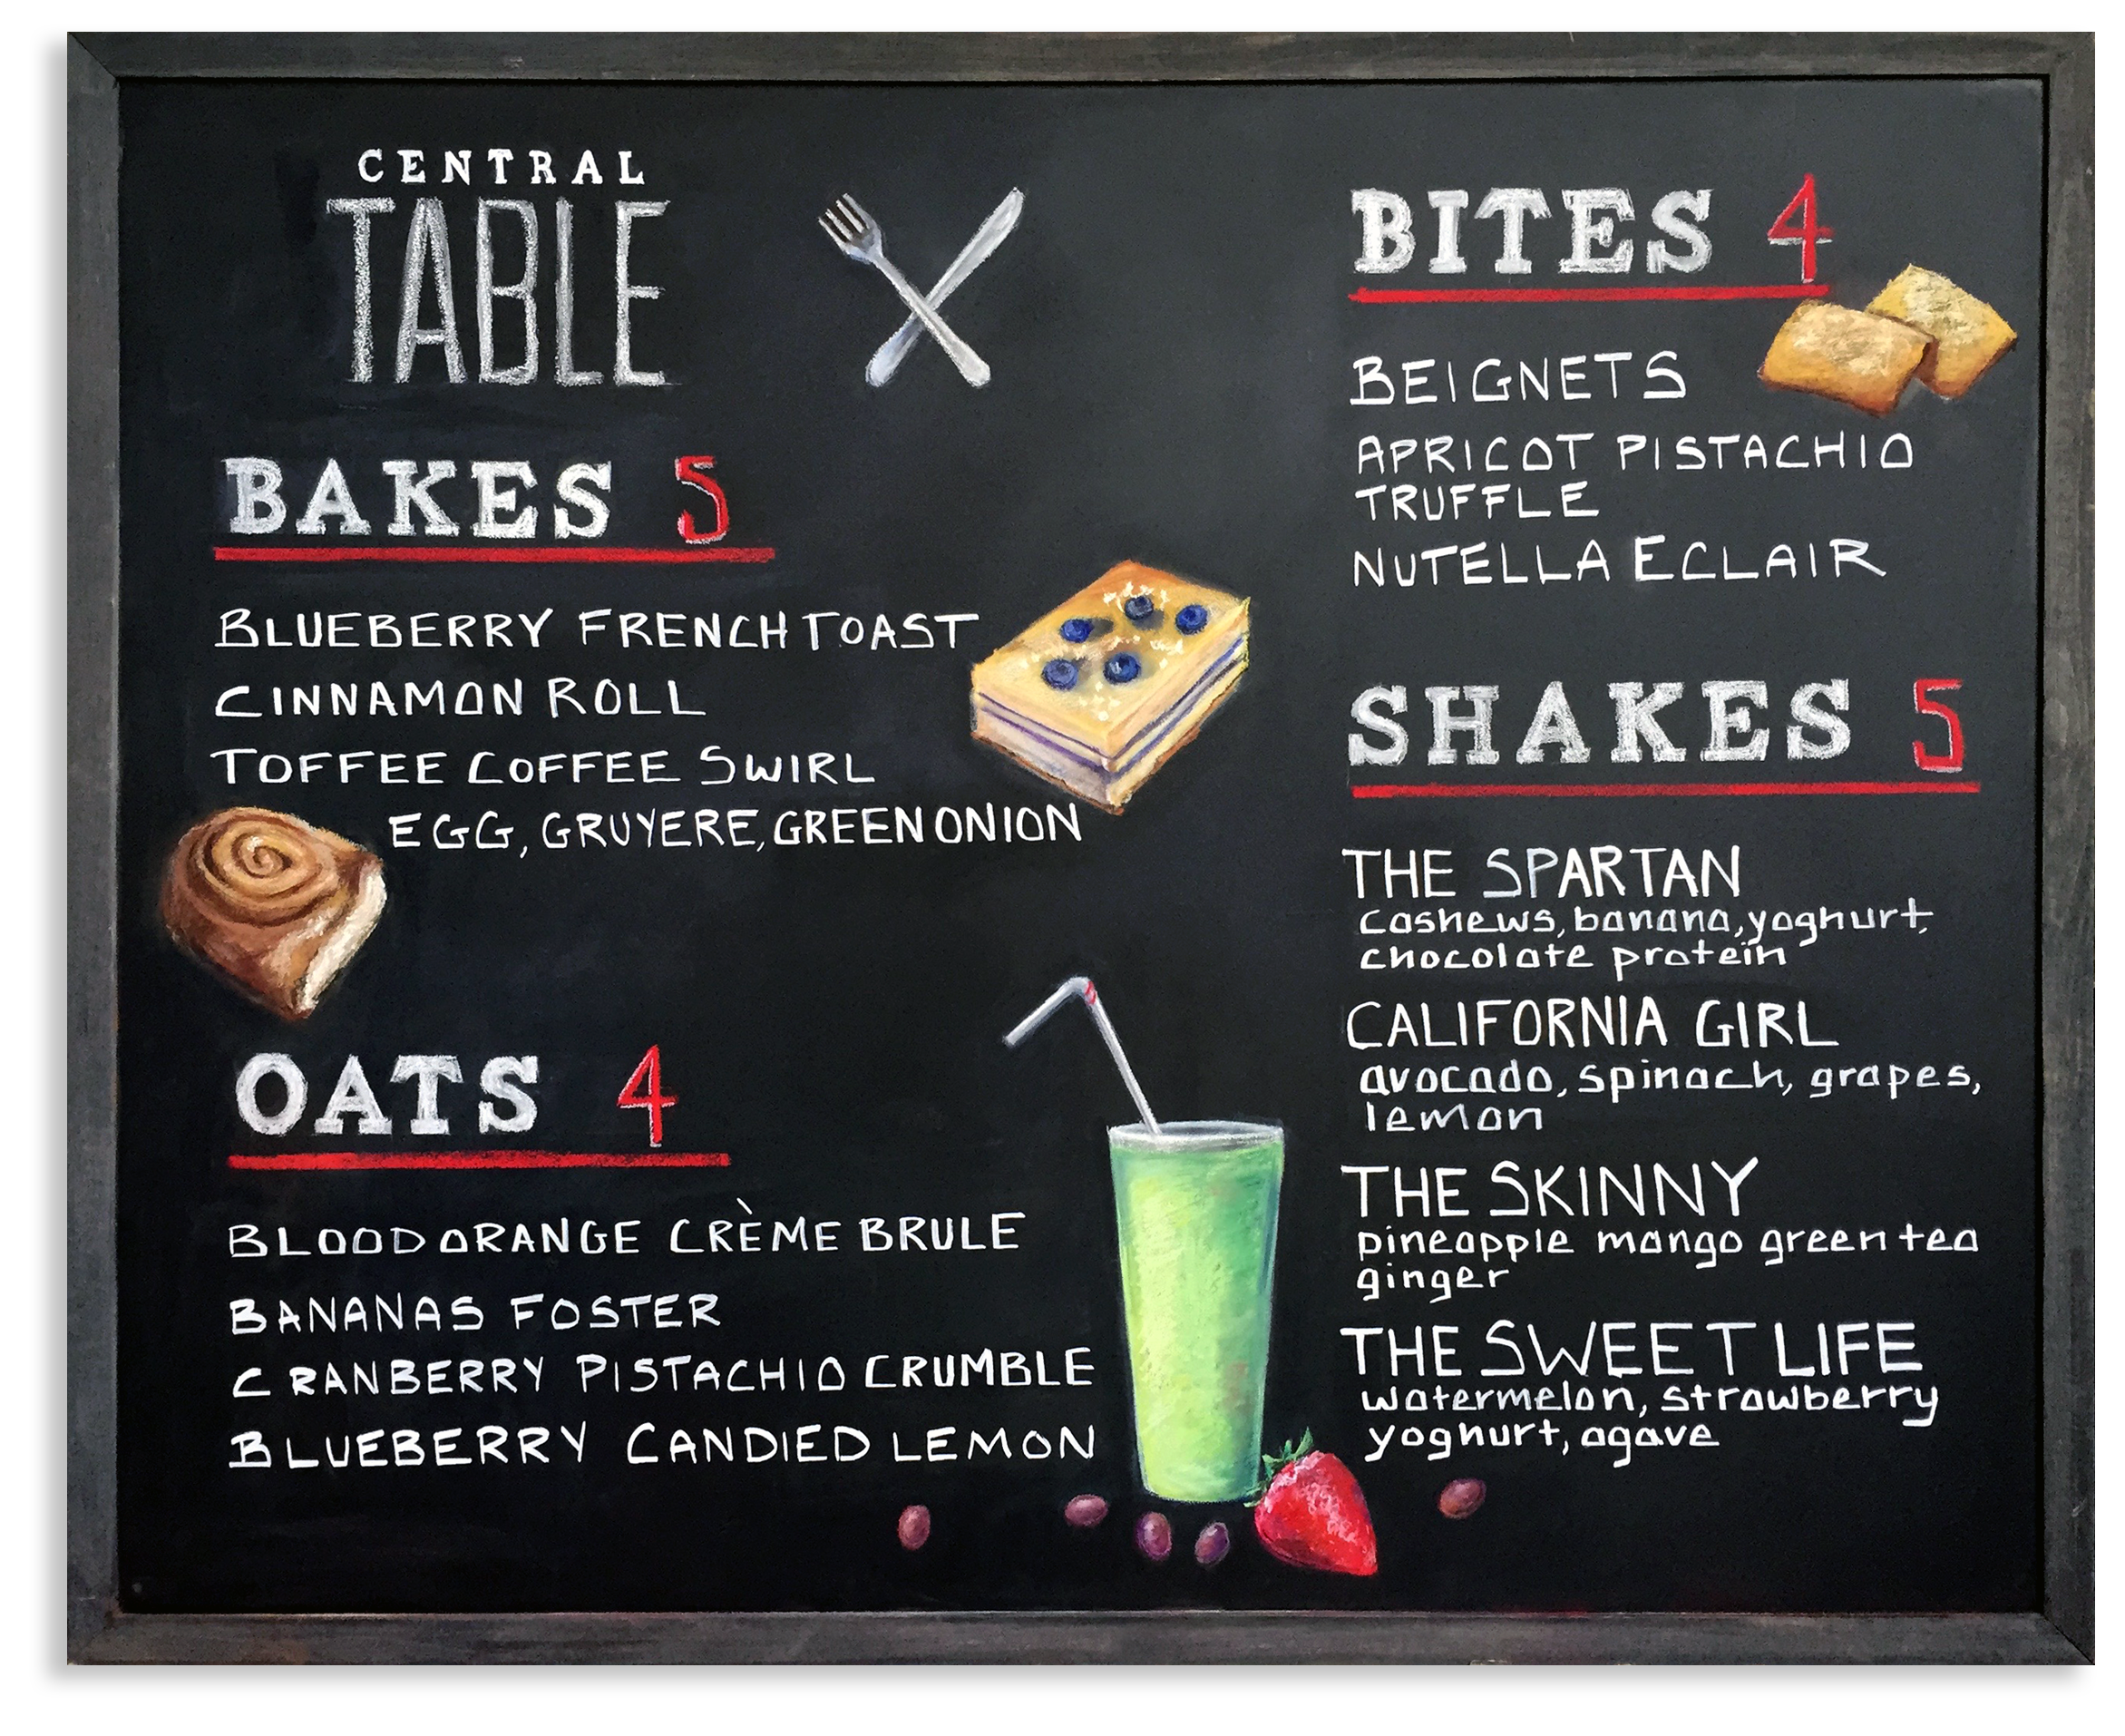 CENTRAL
TABLE
BAKES 5
BLUEBERRY FRENCH TOAST
CINNAMON ROLL
TOFFEE COFFEE SWIRL
EGG, GRUYERE, GREEN ONION
OATS 4
BLOOD ORANGE CRÈME BRULE
BANANAS FOSTER
CRANBERRY PISTACHIO CRUMBLE
BLUEBERRY CANDIED LEMON
BITES 4
BEIGNETS
APRICOT PISTACHIO
TRUFFLE
NUTELLA ECLAIR
SHAKES 5
THE SPARTAN
cashews, banana, yoghurt,
chocolate protein
CALIFORNIA GIRL
avocado, spinach, grapes,
lemon
THE SKINNY
pineapple mango green tea
ginger
THE SWEET LIFE
watermelon, strawberry
yoghurt, agave